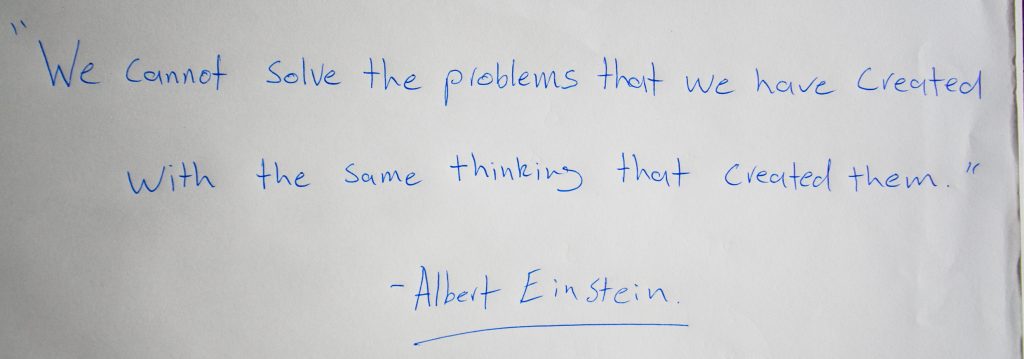 "We Cannot Solve the problems that we have Created
With the Same thinking that Created them."
- Albert Einstein.